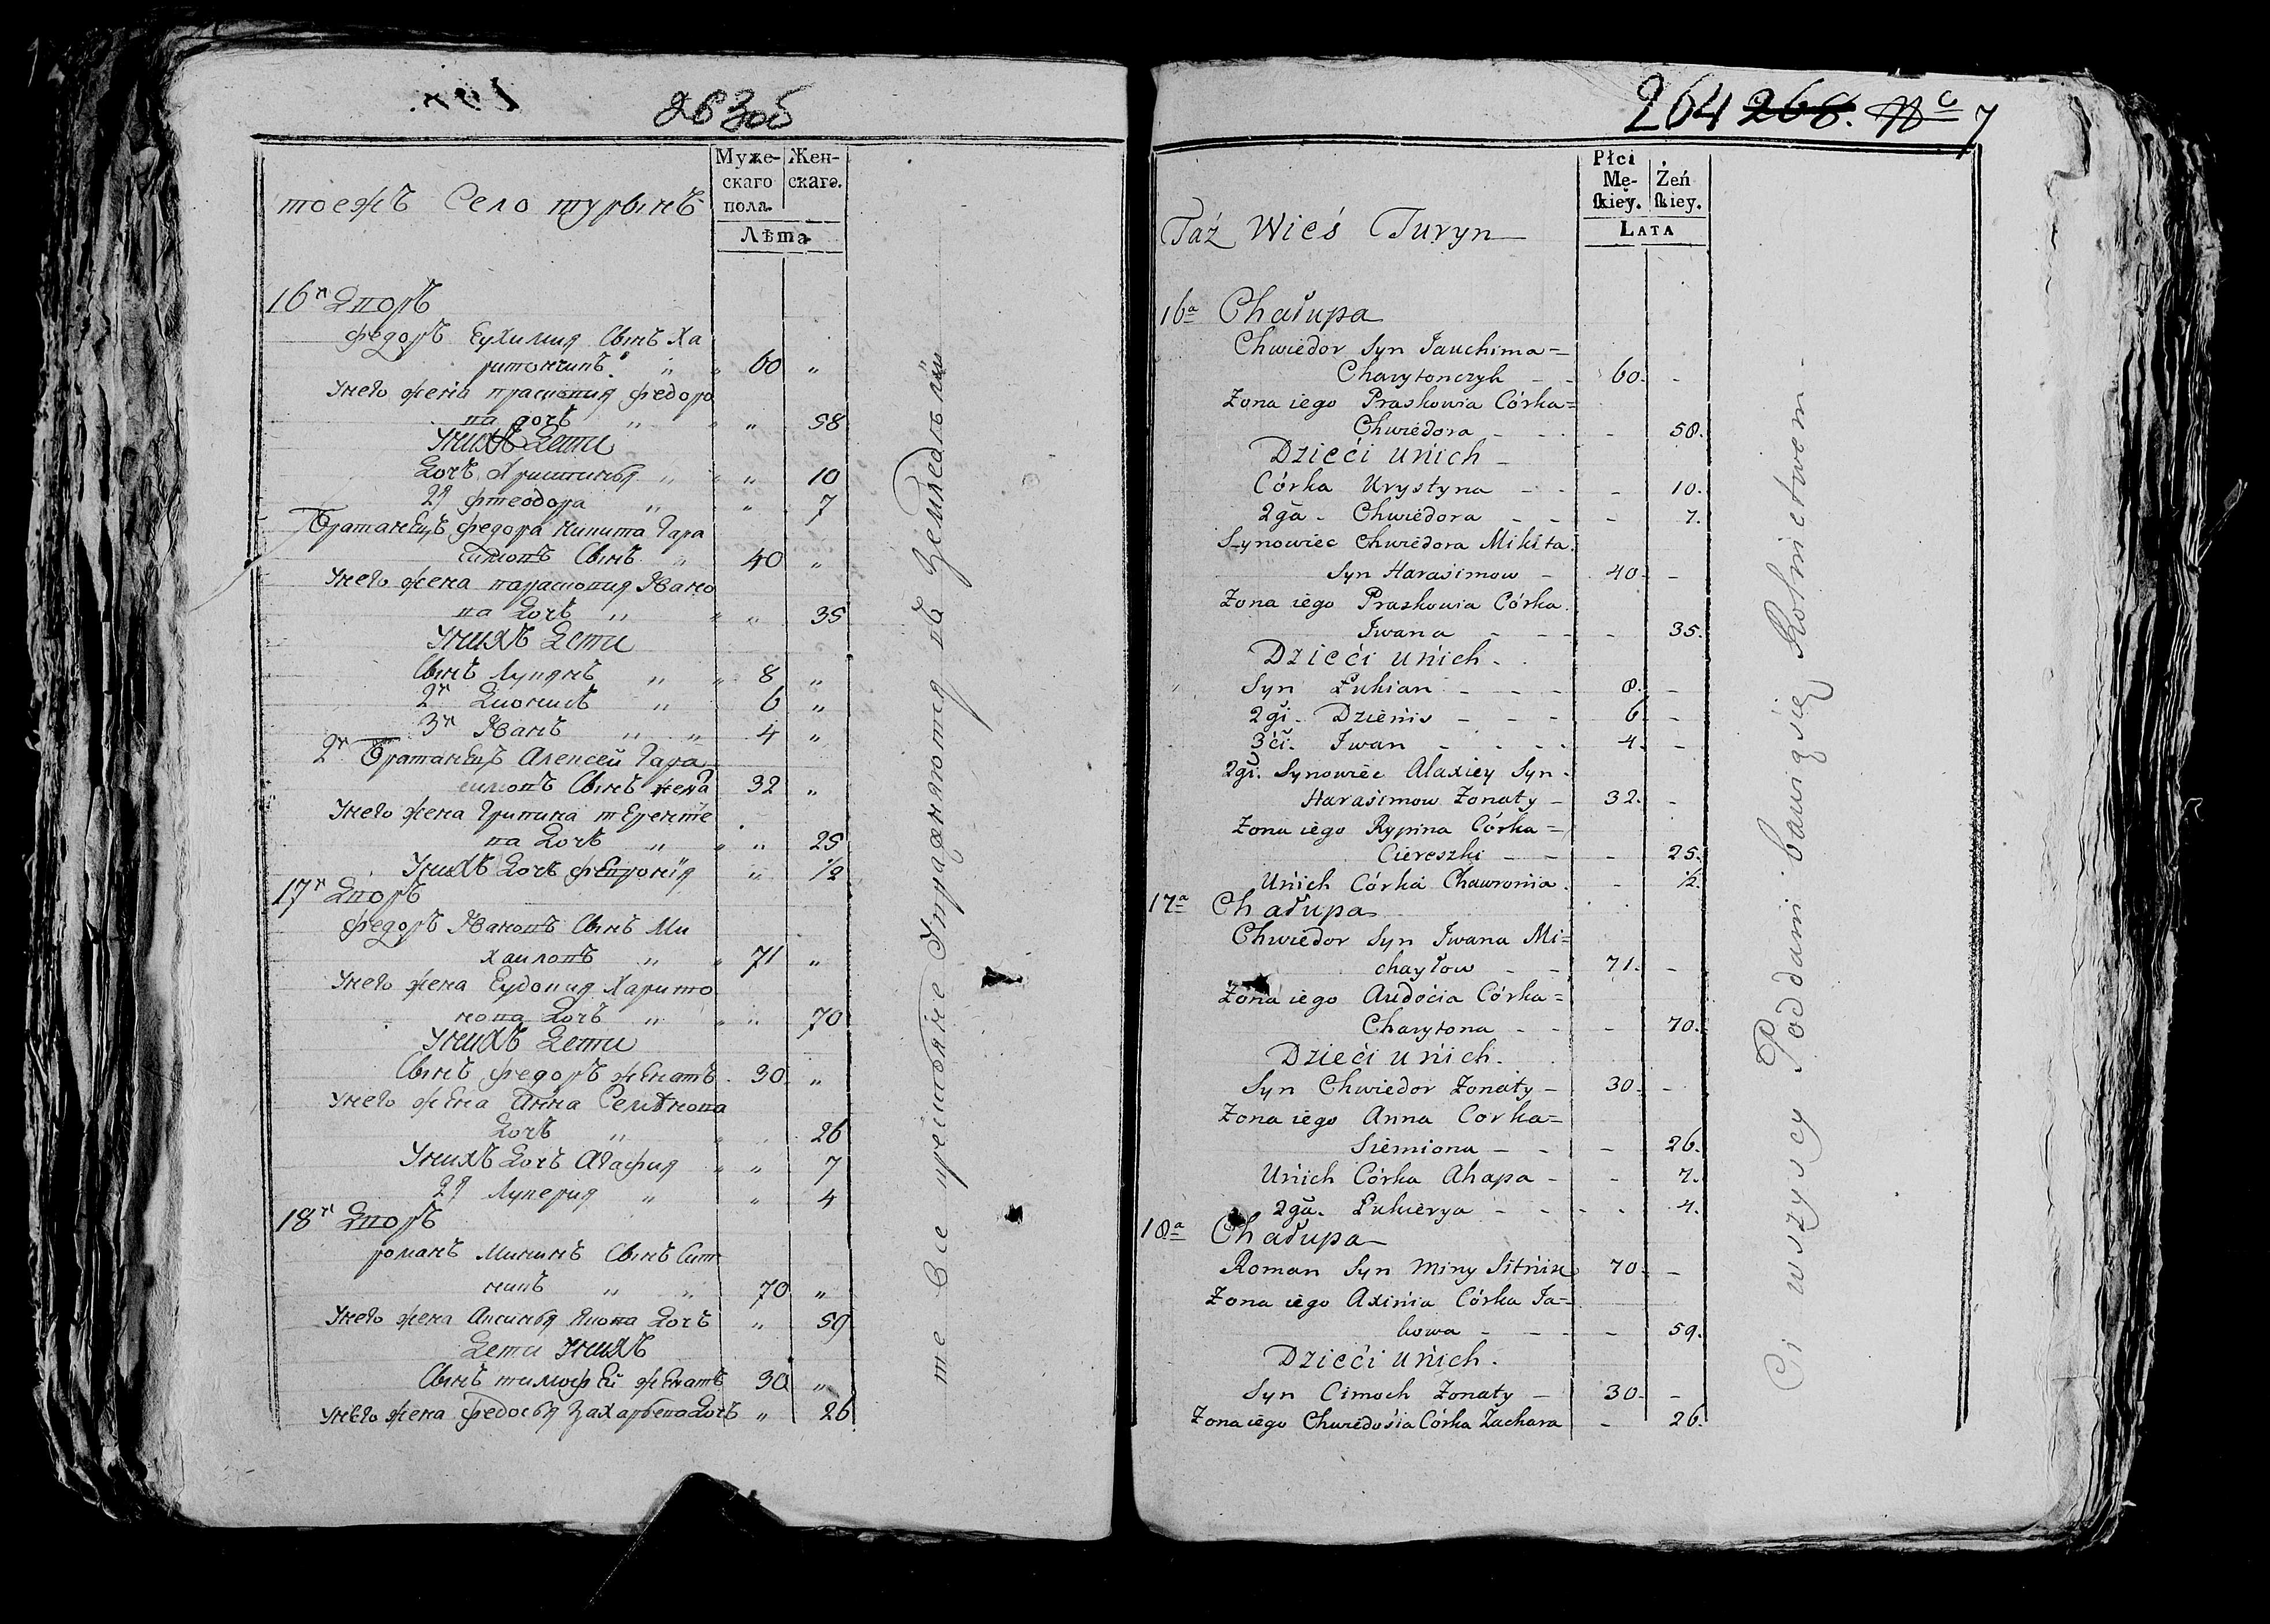 263об
тоежъ Село турынъ
Муже-
скаго
пола.
Жен-
скаго.
Лѣта
16й Дворъ
федоръ Еухимия Сынъ Ха
ритончикъ " " 60 "
унего жена прасковия федоро
ва дочъ " " " 58
Унихъ Дети
Дочъ Христинья " " " 10
2я фтеодора " " 7
Братанецъ федора Никита Гара
симовъ Сынъ " 40 "
Унего жена парасковия Ивано
ва Дочъ " " " 35
Унихъ Дети
Сынъ Лукянъ " " 8 "
2й Дионисъ " 6 "
3й Иванъ " " 4 "
2й Братанецъ Алексей Гара
симовъ Сынъ жена 32 "
Унего жена Грипина терентте
ва Дочъ " " " 25
Унихъ Дочъ февронїя " 1/2
17й Дворъ
федоръ Ивановъ Сынъ Ми
хаиловъ " " 71 "
Унего жена Еудокия Харито
нова Дочъ " " " 70
Унихъ Дети
Сынъ федоръ женатъ 30 "
Унего жена Анна Семѣнова
Дочъ " " " 26
Унихъ Дочъ Агафия " " 7
2я Лукерия " " 4
18й Дворъ
романъ Мининъ Сынъ Сит
никъ " " 70 "
Унего жена Аксинья Якова Дочъ " 59
Дети Унихъ
Сынъ тимофей женатъ 30 "
Унего жена федосья Захарьева Дочъ " 26
те Все крестьяне Упражняютця въ Земледелїи
264 268. No 7
Taż Wieś Turyn
Płci
Mę-
ſkiey.
Żeń
ſkiey.
LATA
16a Chałupa
Chwiedor Syn Jauchima=
Charytonczyk - - 60. -
Żona iego Praskowia Córka=
Chwiedora - - - - 58.
Dzieći unich -
Córka Krystyna - - - 10.
2ga - Chwiedora - - - 7.
Synowiec Chwiedora Mikita
Syn Harasimow - 40. -
Żona iego Praskowia Córka
Iwana - - - - 35.
Dzieći unich.
Syn Łukian - - - 8. -
2gi - Dzienis - - - 6. -
3ći. Iwan - - - - 4. -
2gi. Synowiec Alaxiey Syn
Harasimow Żonaty - 32. -
Żona iego Rypina Córka=
Ciereszki - - - 25.
Unich Córka Chawronia. - 1/2.
17a Chałupa
Chwiedor Syn Iwana Mi=
chayłow - - 71. -
Żona iego Audocia Córka=
Charytona - - - 70.
Dzieći unich.
Syn Chwiedor Żonaty - 30. -
Żona iego Anna Corka=
Siemiona - - - 26.
Unich Córka Ahapa - - 7.
2ga. Łukierya - - - - 4.
18a Chałupa
Roman Syn Miny Sitnik 70. -
Żona iego Axinia Córka Ja=
kowa - - - - 59.
Dzieći unich.
Syn Cimoch Żonaty - 30. -
Żona iego Chwiedosia Córka Zachara - 26.
Ci wszyscy Poddani bawią się Rolnictwem -